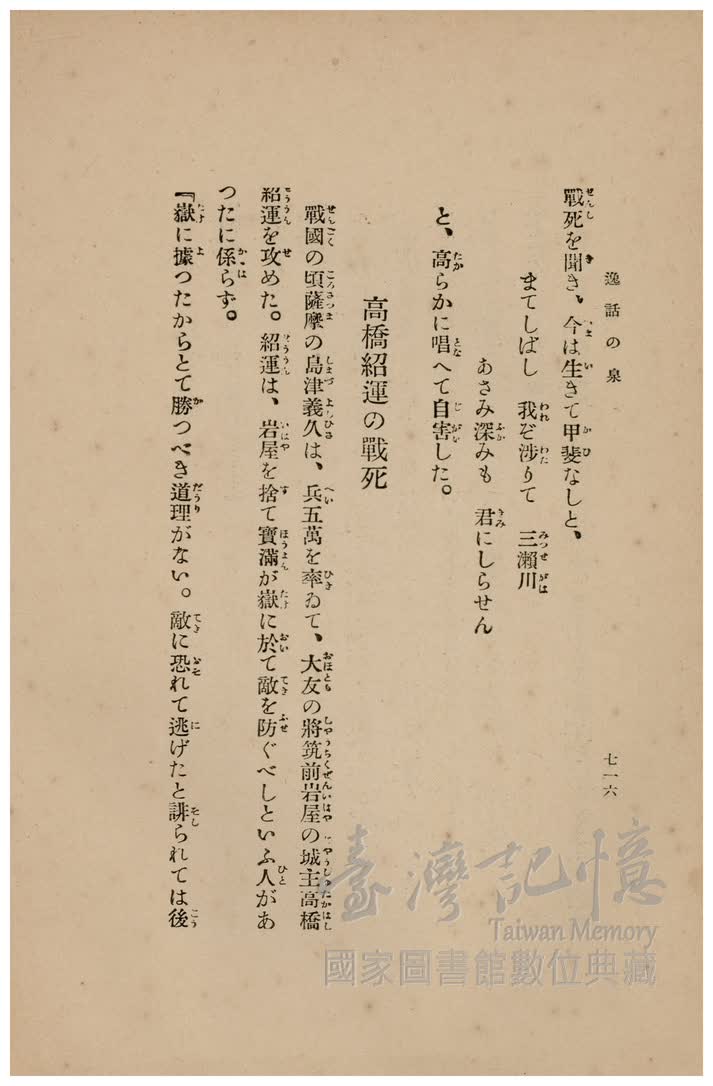 逸話の泉
七一六
戰死を聞き、今は生きて甲斐なしと、
まてしばし　我ぞ渉りて　三瀨川
あさみ深みも　君にしらせん
と、高らかに唱へて自害した。
高橋紹運の戰死
戰國の頃薩摩の島津義久は、兵五萬を率ゐて、大友の將筑前岩屋の城主高橋
紹運を攻めた。紹運は、岩屋を捨て寶滿が嶽に於て敵を防ぐべしといふ人があ
つたに係らず。
『嶽に據つたからとて勝つべき道理がない。敵に恐れて逃げたと誹られては後
臺灣記憶
Taiwan Memory
國家圖書館數位典藏